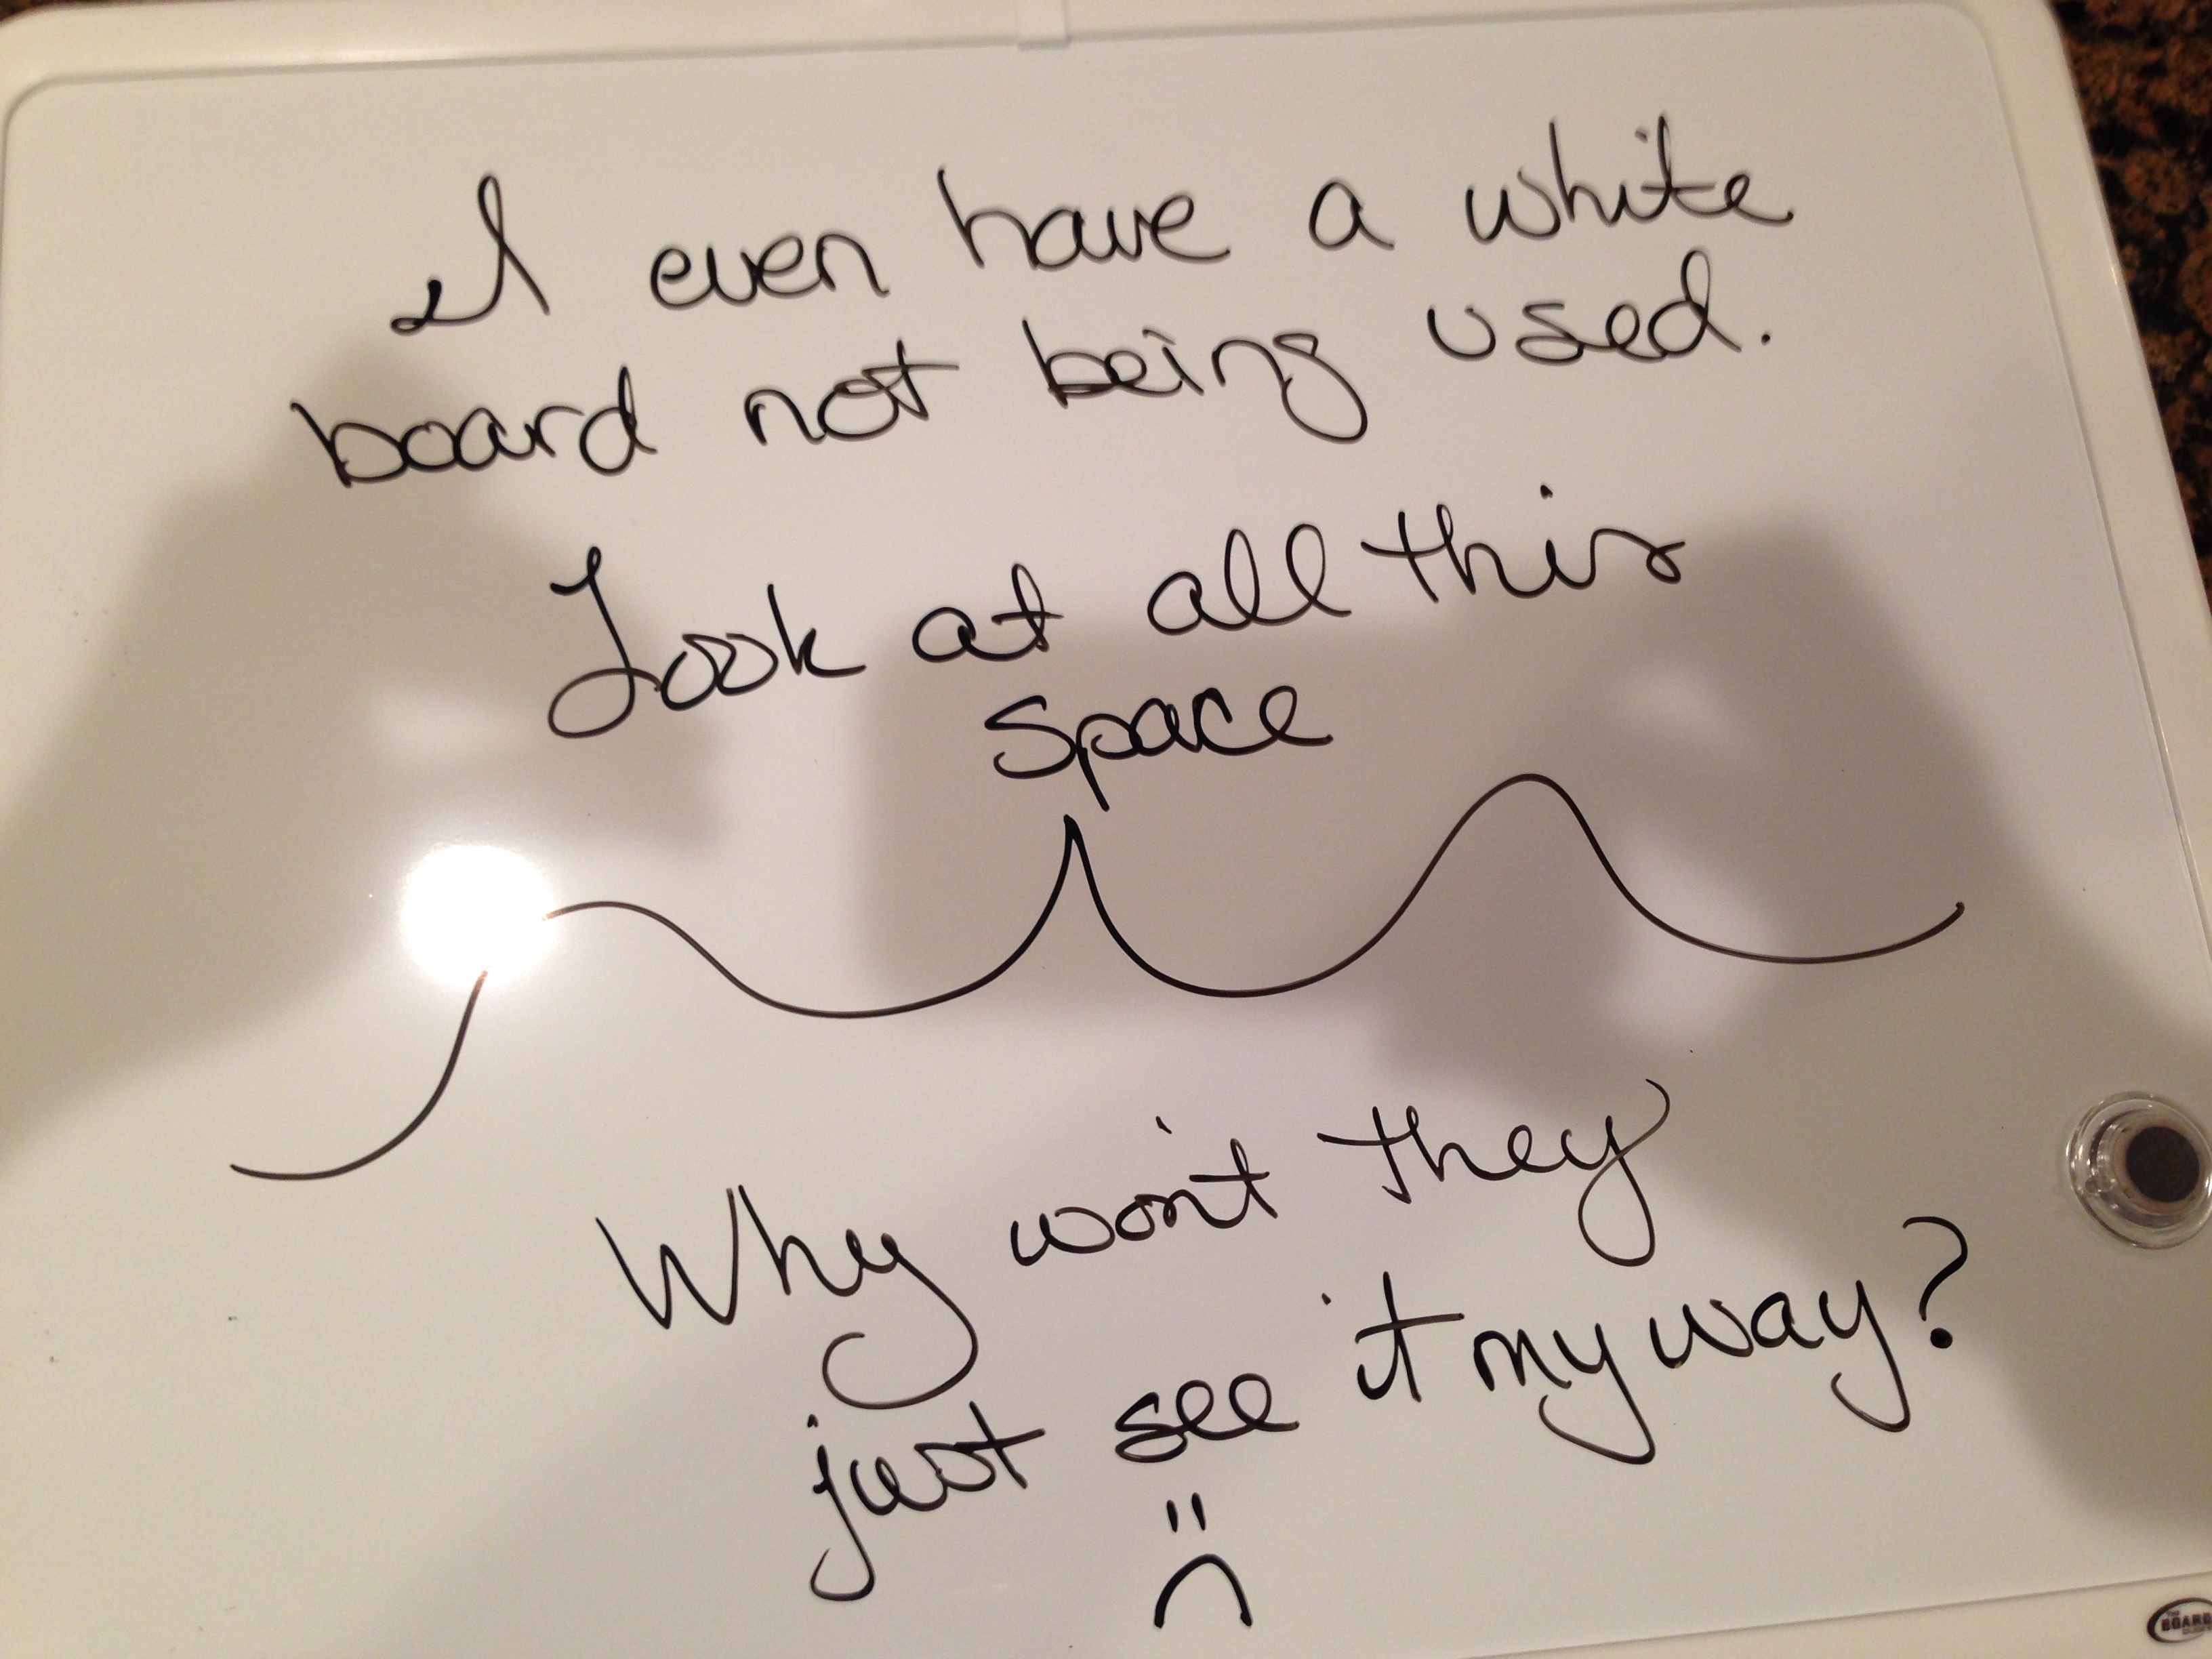 I even have a white
board not being used.
Look at all this
space
Why won't they
just see it my way?
BOARD